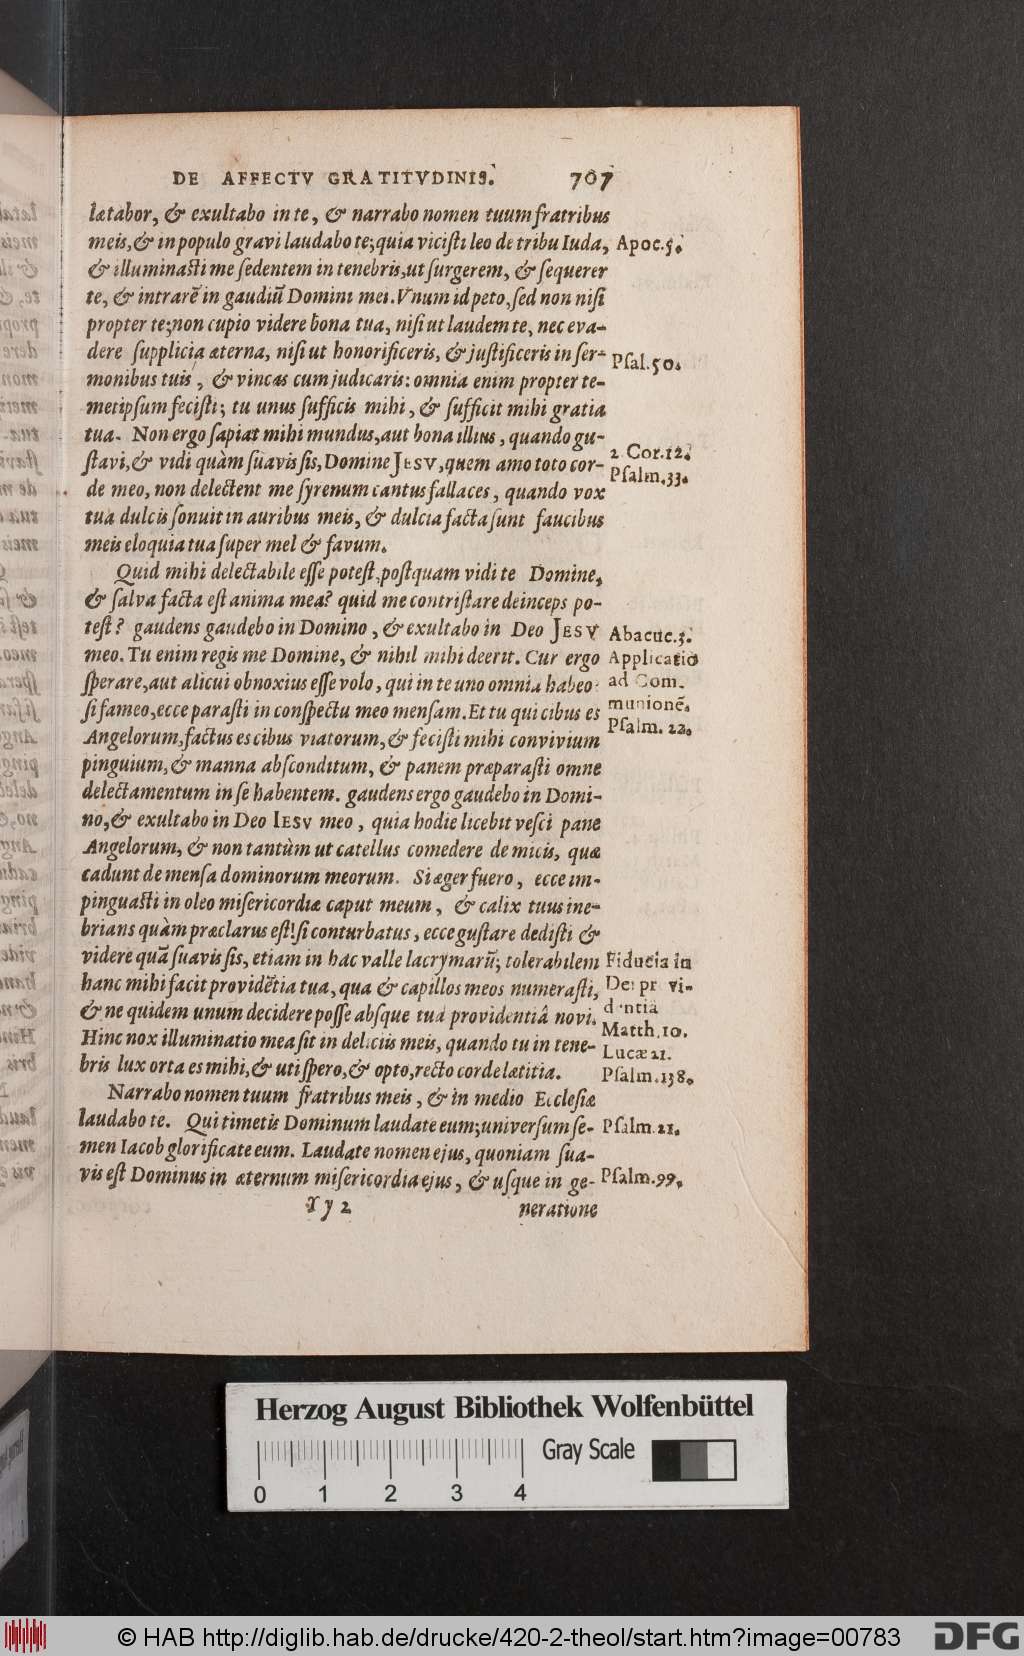 DE AFFECTV GRATITVDINIS. 707
lætabor, & exultabo in te, & narrabo nomen tuum fratribus
meis, & in populo gravi laudabo te; quia vicisti leo de tribu Iuda, Apoc.5.
& illuminasti me sedentem in tenebris, ut surgerem, & sequerer
te, & intrarē in gaudiū Domini mei. Vnum id peto, sed non nisi
propter te; non cupio videre bona tua, nisi ut laudem te, nec eva-
dere supplicia æterna, nisi ut honorificeris, & justificeris in ser- Psal.50.
monibus tuis, & vincas cum judicaris: omnia enim propter te-
metipsum fecisti; tu unus sufficis mihi, & sufficit mihi gratia
tua. Non ergo sapiat mihi mundus, aut bona illius, quando gu- 2 Cor.12.
stavi, & vidi quàm suavis sis, Domine JESV, quem amo toto cor- Psalm.33.
de meo, non delectent me syrenum cantus fallaces, quando vox
tua dulcis sonuit in auribus meis, & dulcia facta sunt faucibus
meis eloquia tua super mel & favum.
Quid mihi delectabile esse potest, postquam vidi te Domine,
& salva facta est anima mea? quid me contristare deinceps po-
test? gaudens gaudebo in Domino, & exultabo in Deo JESV Abacuc.3.
meo. Tu enim regis me Domine, & nihil mihi deerit. Cur ergo Applicatio
sperare, aut alicui obnoxius esse volo, qui in te uno omnia habeo: ad Com.
si fameo, ecce parasti in conspectu meo mensam. Et tu qui cibus es munionē.
Angelorum, factus es cibus viatorum, & fecisti mihi convivium Psalm. 22.
pinguium, & manna absconditum, & panem præparasti omne
delectamentum in se habentem. gaudens ergo gaudebo in Domi-
no, & exultabo in Deo IESV meo, quia hodie licebit vesci pane
Angelorum, & non tantùm ut catellus comedere de micis, quæ
cadunt de mensa dominorum meorum. Si æger fuero, ecce im-
pinguasti in oleo misericordiæ caput meum, & calix tuus ine-
brians quàm præclarus est! si conturbatus, ecce gustare dedisti &
videre quā suavis sis, etiam in hac valle lacrymarū; tolerabilem Fiducia in
hanc mihi facit providētia tua, qua & capillos meos numerasti, Dei pr vi-
& ne quidem unum decidere posse absque tuâ providentiâ novi. dentiâ
Hinc nox illuminatio mea sit in deliciis meis, quando tu in tene- Matth.10. Lucæ 21.
bris lux orta es mihi, & uti spero, & opto, recto corde lætitia. Psalm.138.
Narrabo nomen tuum fratribus meis, & in medio Ecclesiæ
laudabo te. Qui timetis Dominum laudate eum; universum se- Psalm.21.
men Iacob glorificate eum. Laudate nomen ejus, quoniam sua-
vis est Dominus in æternum misericordia ejus, & usque in ge- Psalm.99.
Yy 2 neratione
Herzog August Bibliothek Wolfenbüttel
Gray Scale
0 1 2 3 4
© HAB http://diglib.hab.de/drucke/420-2-theol/start.htm?image=00783 DFG